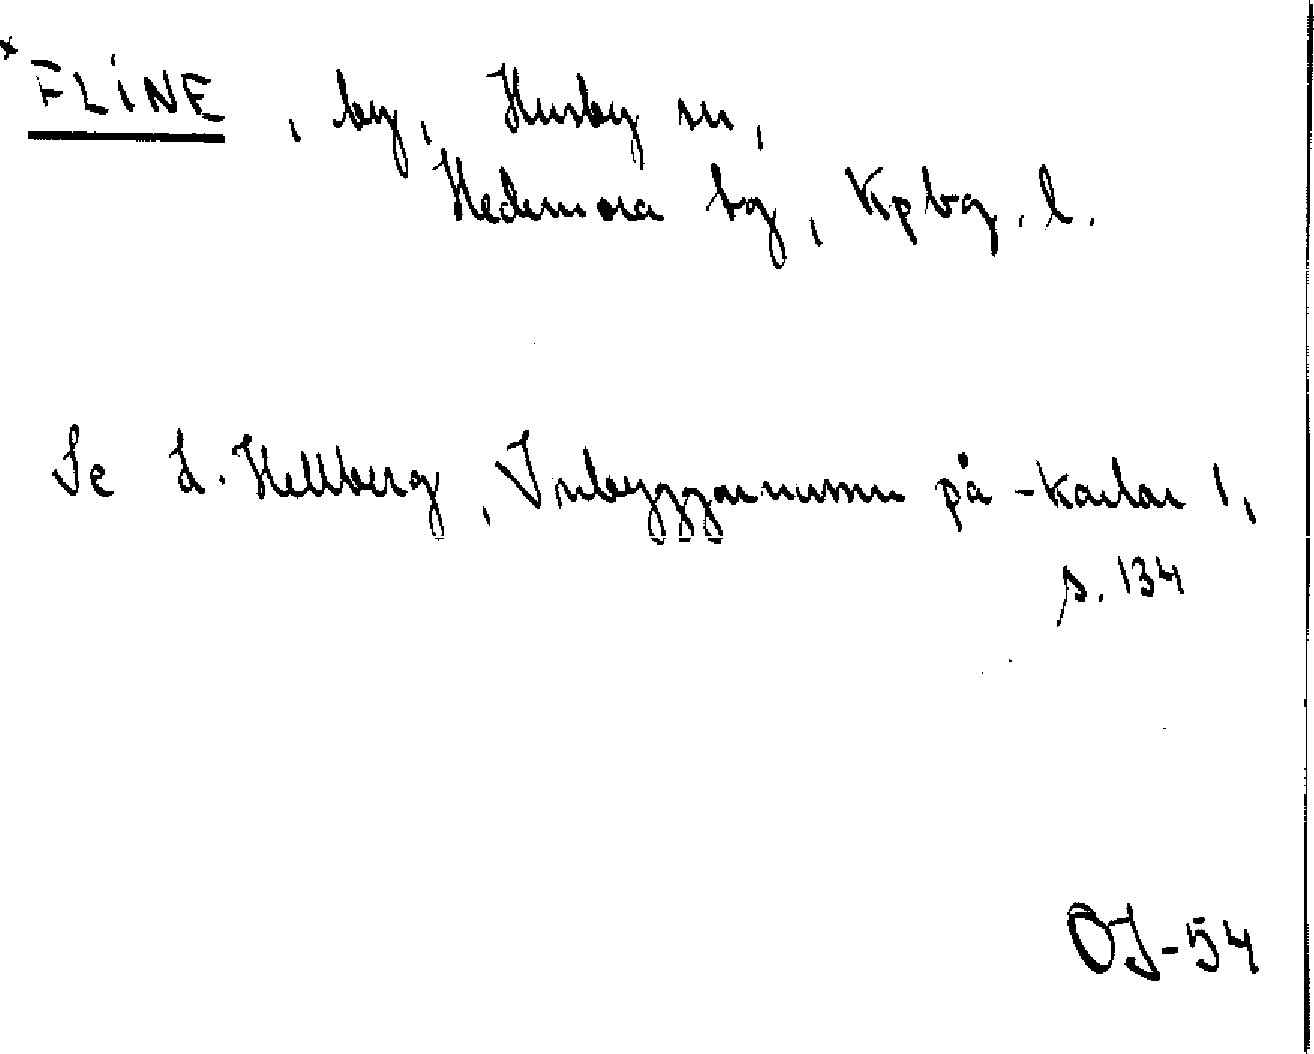 *FLINE, by, Husby sn,
Hedemora tg, Kpbg. l.
Se L. Hellberg, Inbyggarnamn på -karlar 1,
s. 134
OJ-54